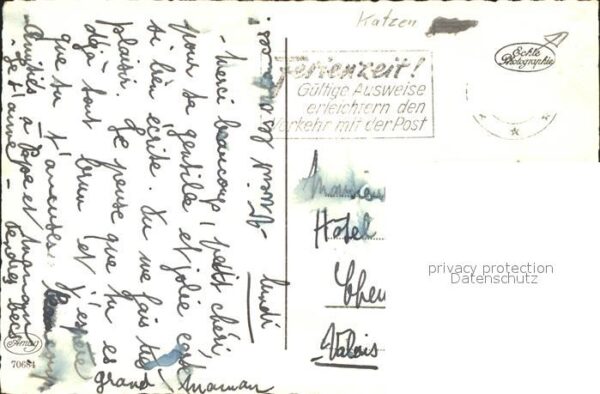 Katzen
Echte
Photographie
Ferienzeit!
Gültige Ausweise
erleichtern den
Verkehr mit der Post
lundi
Merci beaucoup, petit chéri,
pour ta gentille et jolie carte
si bien écrite. Tu me fais très
plaisir. Je pense que tu es
déjà tout brun et j'espère
que tu t'amuses beaucoup
Amitiés à Papa et
Je t'aime Tendres
grand maman
Monsieur
Hôtel
Valais
privacy protection
Datenschutz
Amag
70684